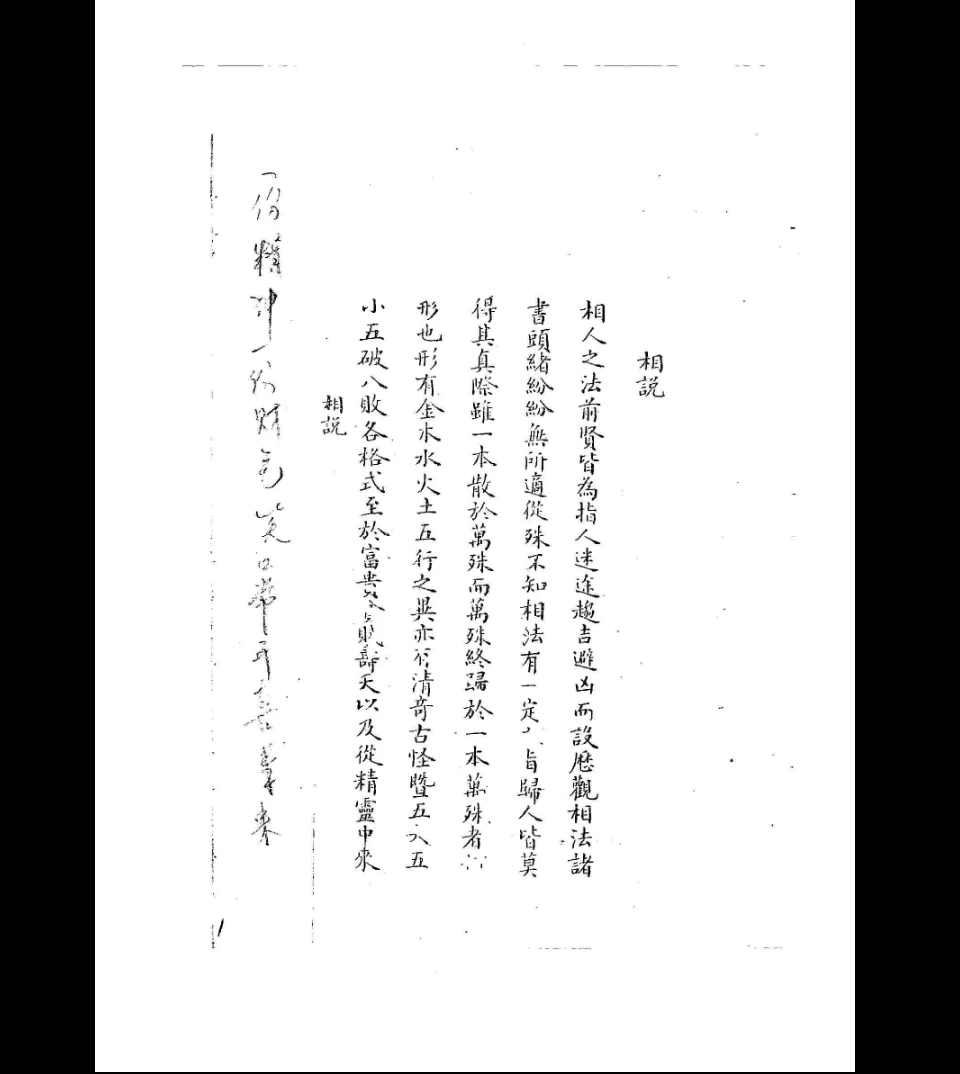 相説
相人之法前賢皆為指人迷途趨吉避凶而設歷觀相法諸
書頭緒紛紛無所適從殊不知相法有一定旨歸人皆莫
得其真際雖一本散於萬殊而萬殊終歸於一本萬殊者
形也形有金木水火土五行之異亦有清奇古怪暨五六五
小五破八敗各格式至於富貴貧賤壽夭以及從精靈中來
相説
一份精神一份財